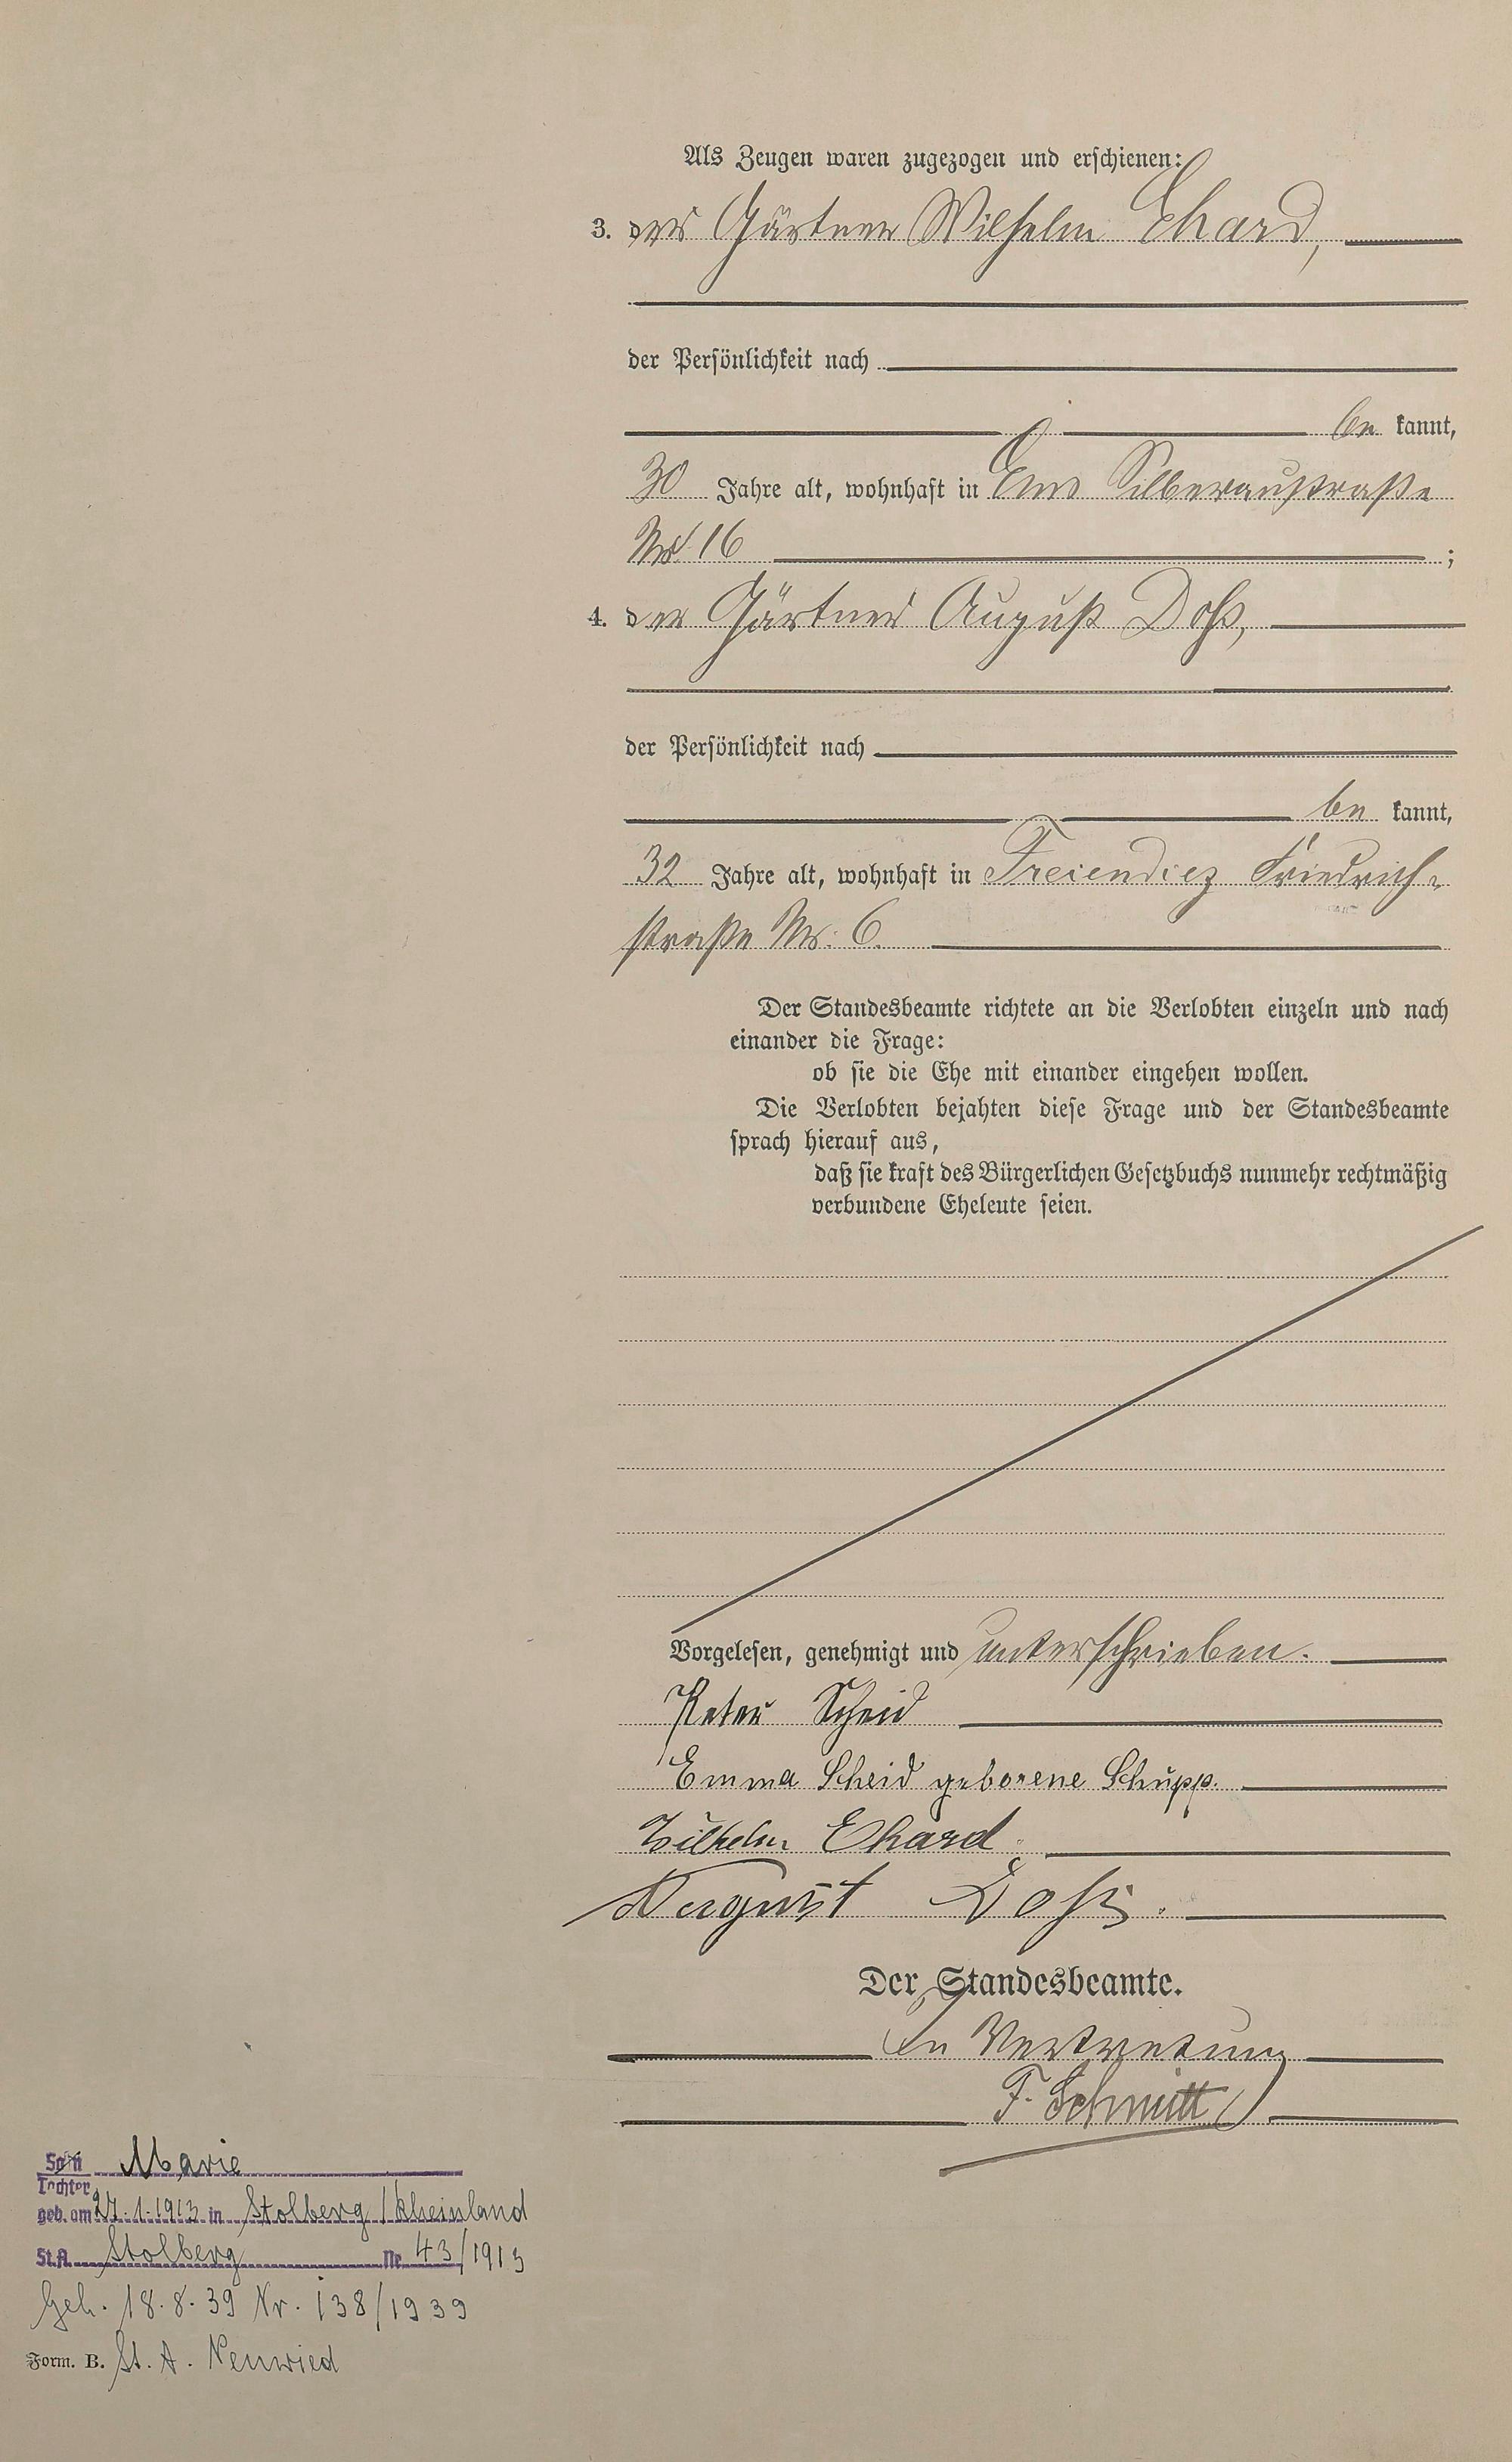 Als Zeugen waren zugezogen und erschienen:
3. der Gärtner Wilhelm Ehard,
der Persönlichkeit nach
be kannt,
30 Jahre alt, wohnhaft in Ems Silberaustraße
Nr. 16 ;
4. der Gärtner August Doß,
der Persönlichkeit nach
be kannt,
32 Jahre alt, wohnhaft in Freiendiez Friedrich-
straße Nr. 6.
Der Standesbeamte richtete an die Verlobten einzeln und nach
einander die Frage:
ob sie die Ehe mit einander eingehen wollen.
Die Verlobten bejahten diese Frage und der Standesbeamte
sprach hierauf aus,
daß sie kraft des Bürgerlichen Gesetzbuchs nunmehr rechtmäßig
verbundene Eheleute seien.
Vorgelesen, genehmigt und unterschrieben.
Peter Scheid
Emma Scheid geborene Schupp.
Wilhelm Ehard.
August Doß.
Der Standesbeamte.
In Vertretung
F. Schmitt
Sohn Marie
Tochter
geb. am 27.1.1913 in Stolberg / Rheinland
St.A. Stolberg Nr. 43/1913
Geh. 18.8.39 Nr. 138/1939
Form. B. St. A. Neuwied